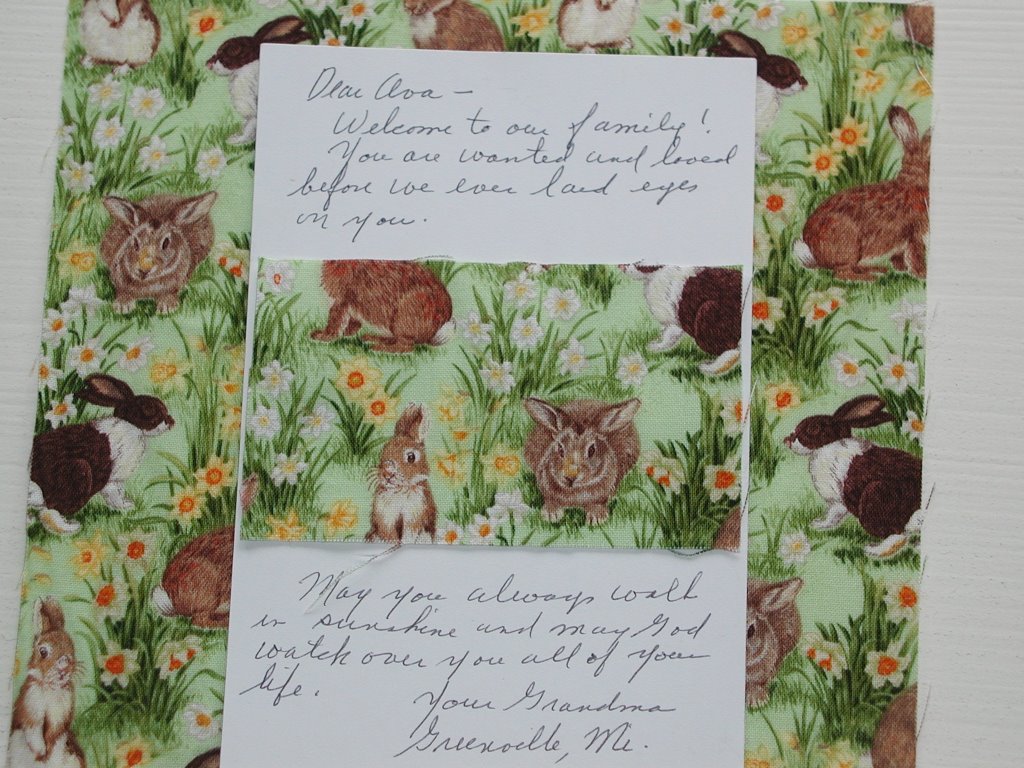 Dear Ava —
Welcome to our family!
You are wanted and loved
before we ever laid eyes
on you.
May you always walk
in sunshine and may God
watch over you all of your
life.
Your Grandma
Greenville, Mi.